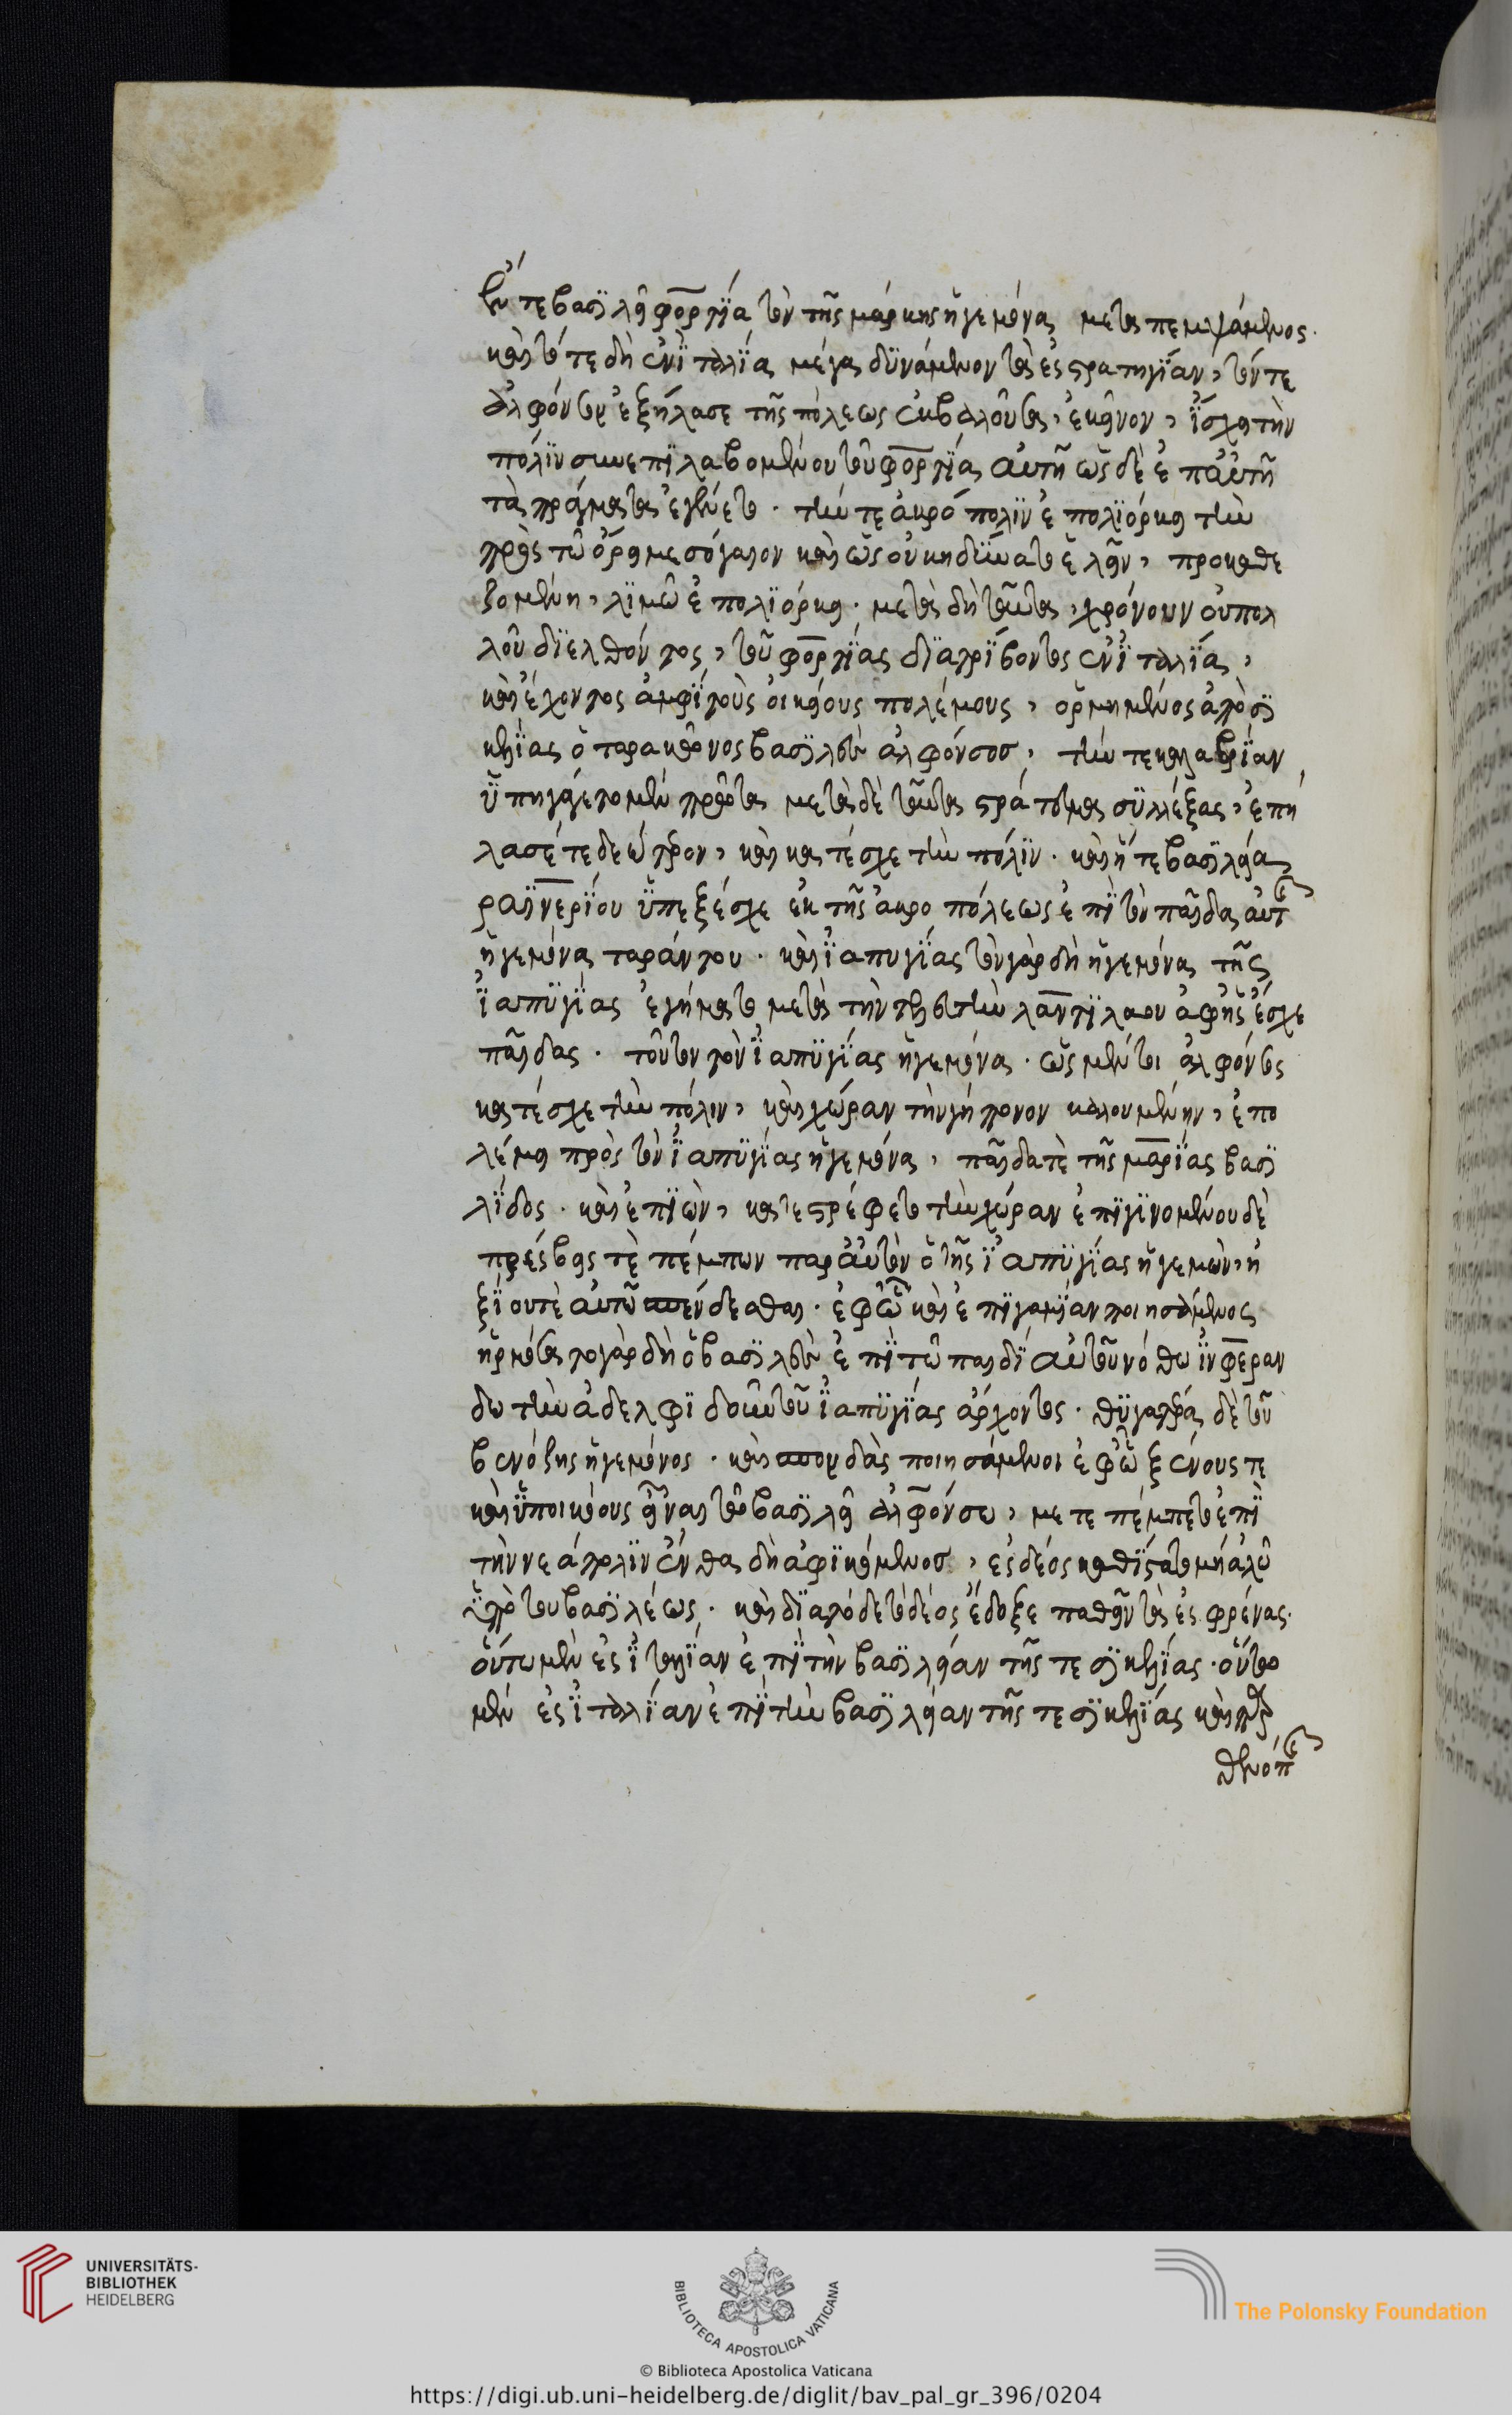 ἔν τε βασϊλεῖ φορτϊᾶ τὸν τῆς μάρκης ἡγεμόνα μεταπεμψάμενος.
καὶ τό τε δὴ ἐν ἰταλΐα μέγα δϋνάμενον τὰ ἐς στρατηγΐαν, τόν τε
ἀλφόνσον ἐξήλασε τῆς πόλεως ἐκβαλοῦσα, ἐκεῖνον, ἴσχει τὴν
πόλϊν συνεπϊλαβομένου τοῦ φορτϊᾶ αὐτῆ ὡς δὲ ἐπ αὐτῆ
τὰ πράγματα ἐγένετο. τήν τε ἀκρόπολϊν ἐπολϊόρκει τὴν
πρὸς τῶ ὄρει μεσόγαιον καὶ ὡς οὐκ ηδΰνατο ἑλεῖν, προκαθε
ζομένη, λϊμῶ ἐπολϊόρκει. μετὰ δὴ ταῦτα, χρόνου οὐ πολ
λοῦ δϊελθόντος, τοῦ φορτϊᾶ δϊατρΐβοντος ἐν ἰταλΐα,
καὶ ἔχοντος ἀμφὶ τοὺς οἰκείους πολέμους, ὁρμημένος ἀπὸ σϊ
κελΐας ὁ ταρακῶνος βασϊλεὺς ἀλφόνσος, τήν τε καλαβρΐαν
ὑπηγάγετο μὲν πρῶτα μετὰ δὲ ταῦτα στράτευμα συλλέξας, ἐπή
λασέ τε δεύτερον, καὶ κατέσχε τὴν πόλϊν. καὶ ἥ τε βασϊλεια
ραϊνερΐου ὑπεξέσχε ἐκ τῆς ἀκροπόλεως ἐπὶ τὸν παῖδα αὐτῆς
ἡγεμόνα ταράντου. καὶ ἰαπυγΐας τὸν γὰρ δὴ ἡγεμόνα τῆς
ἰαπϋγΐας ἐγήματο μετὰ τὴν τελευτὴν λαντϊλάου ἀφ ἧς ἔσχε
παῖδας. τοῦτον τὸν ἰαπϋγΐας ἡγεμόνα. ὡς μέντοι ἀλφόνσος
κατέσχε τὴν πόλιν, καὶ χώραν τὴν γήπονον καλουμένην, ἐπο
λέμει πρὸς τὸν ἰαπϋγΐας ἡγεμόνα, παῖδά τε τῆς μαρΐας βασϊ
λΐδος. καὶ ἐπϊὼν, κατεστρέφετο τὴν χώραν ἐπϊγϊνομένου δὲ
πρέσβεις τὲ πέμπων παρ αὐτὸν ὁ τῆς ἰαπϋγΐας ἡγεμὼν, ἠ
ξΐου τὲ αὐτῶ σπένδεσθαι. ἐφ ὧ καὶ ἐπϊγαμΐαν ποιησάμενος
ἡρμόσατο γὰρ δὴ ὁ βασϊλεὺς ἐπὶ τῶ παιδὶ αὐτοῦ νόθω ἰνφεραν
δω τὴν ἀδελφϊδοῦν τοῦ ἰαπϋγΐας ἄρχοντος. θϋγατέρα δὲ τοῦ
βενόζης ἡγεμόνος. καὶ σπονδὰς ποιησάμενοι ἐφ ὧ ξένους τε
καὶ ὑποικόους εἶναι τῶ βασϊλεῖ ἀλφόνσω, με τε πέμπετο ἐπὶ
τὴν νεάπολϊν ἔνθα δὴ ἀφϊκόμενοσ, ἐς δέος καθΐστατο μὴ ἁλῶ
ὑπὸ του βασϊλέως. καὶ δϊὰ τόδε τὸ δέος ἔδοξε παθεῖν τὰ ἐς φρένας.
οὕτω μὲν ἐς ἰταλΐαν ἐπὶ τὴν βασϊλείαν τῆς τε σϊκελΐας. οὕτω
μὲν ἐς ἰταλΐαν ἐπὶ τὴν βασϊλείαν τῆς τε σϊκελΐας καὶ παρ
θενόπης
UNIVERSITÄTS-
BIBLIOTHEK
HEIDELBERG
BIBLIOTECA APOSTOLICA VATICANA
The Polonsky Foundation
© Biblioteca Apostolica Vaticana
https://digi.ub.uni-heidelberg.de/diglit/bav_pal_gr_396/0204